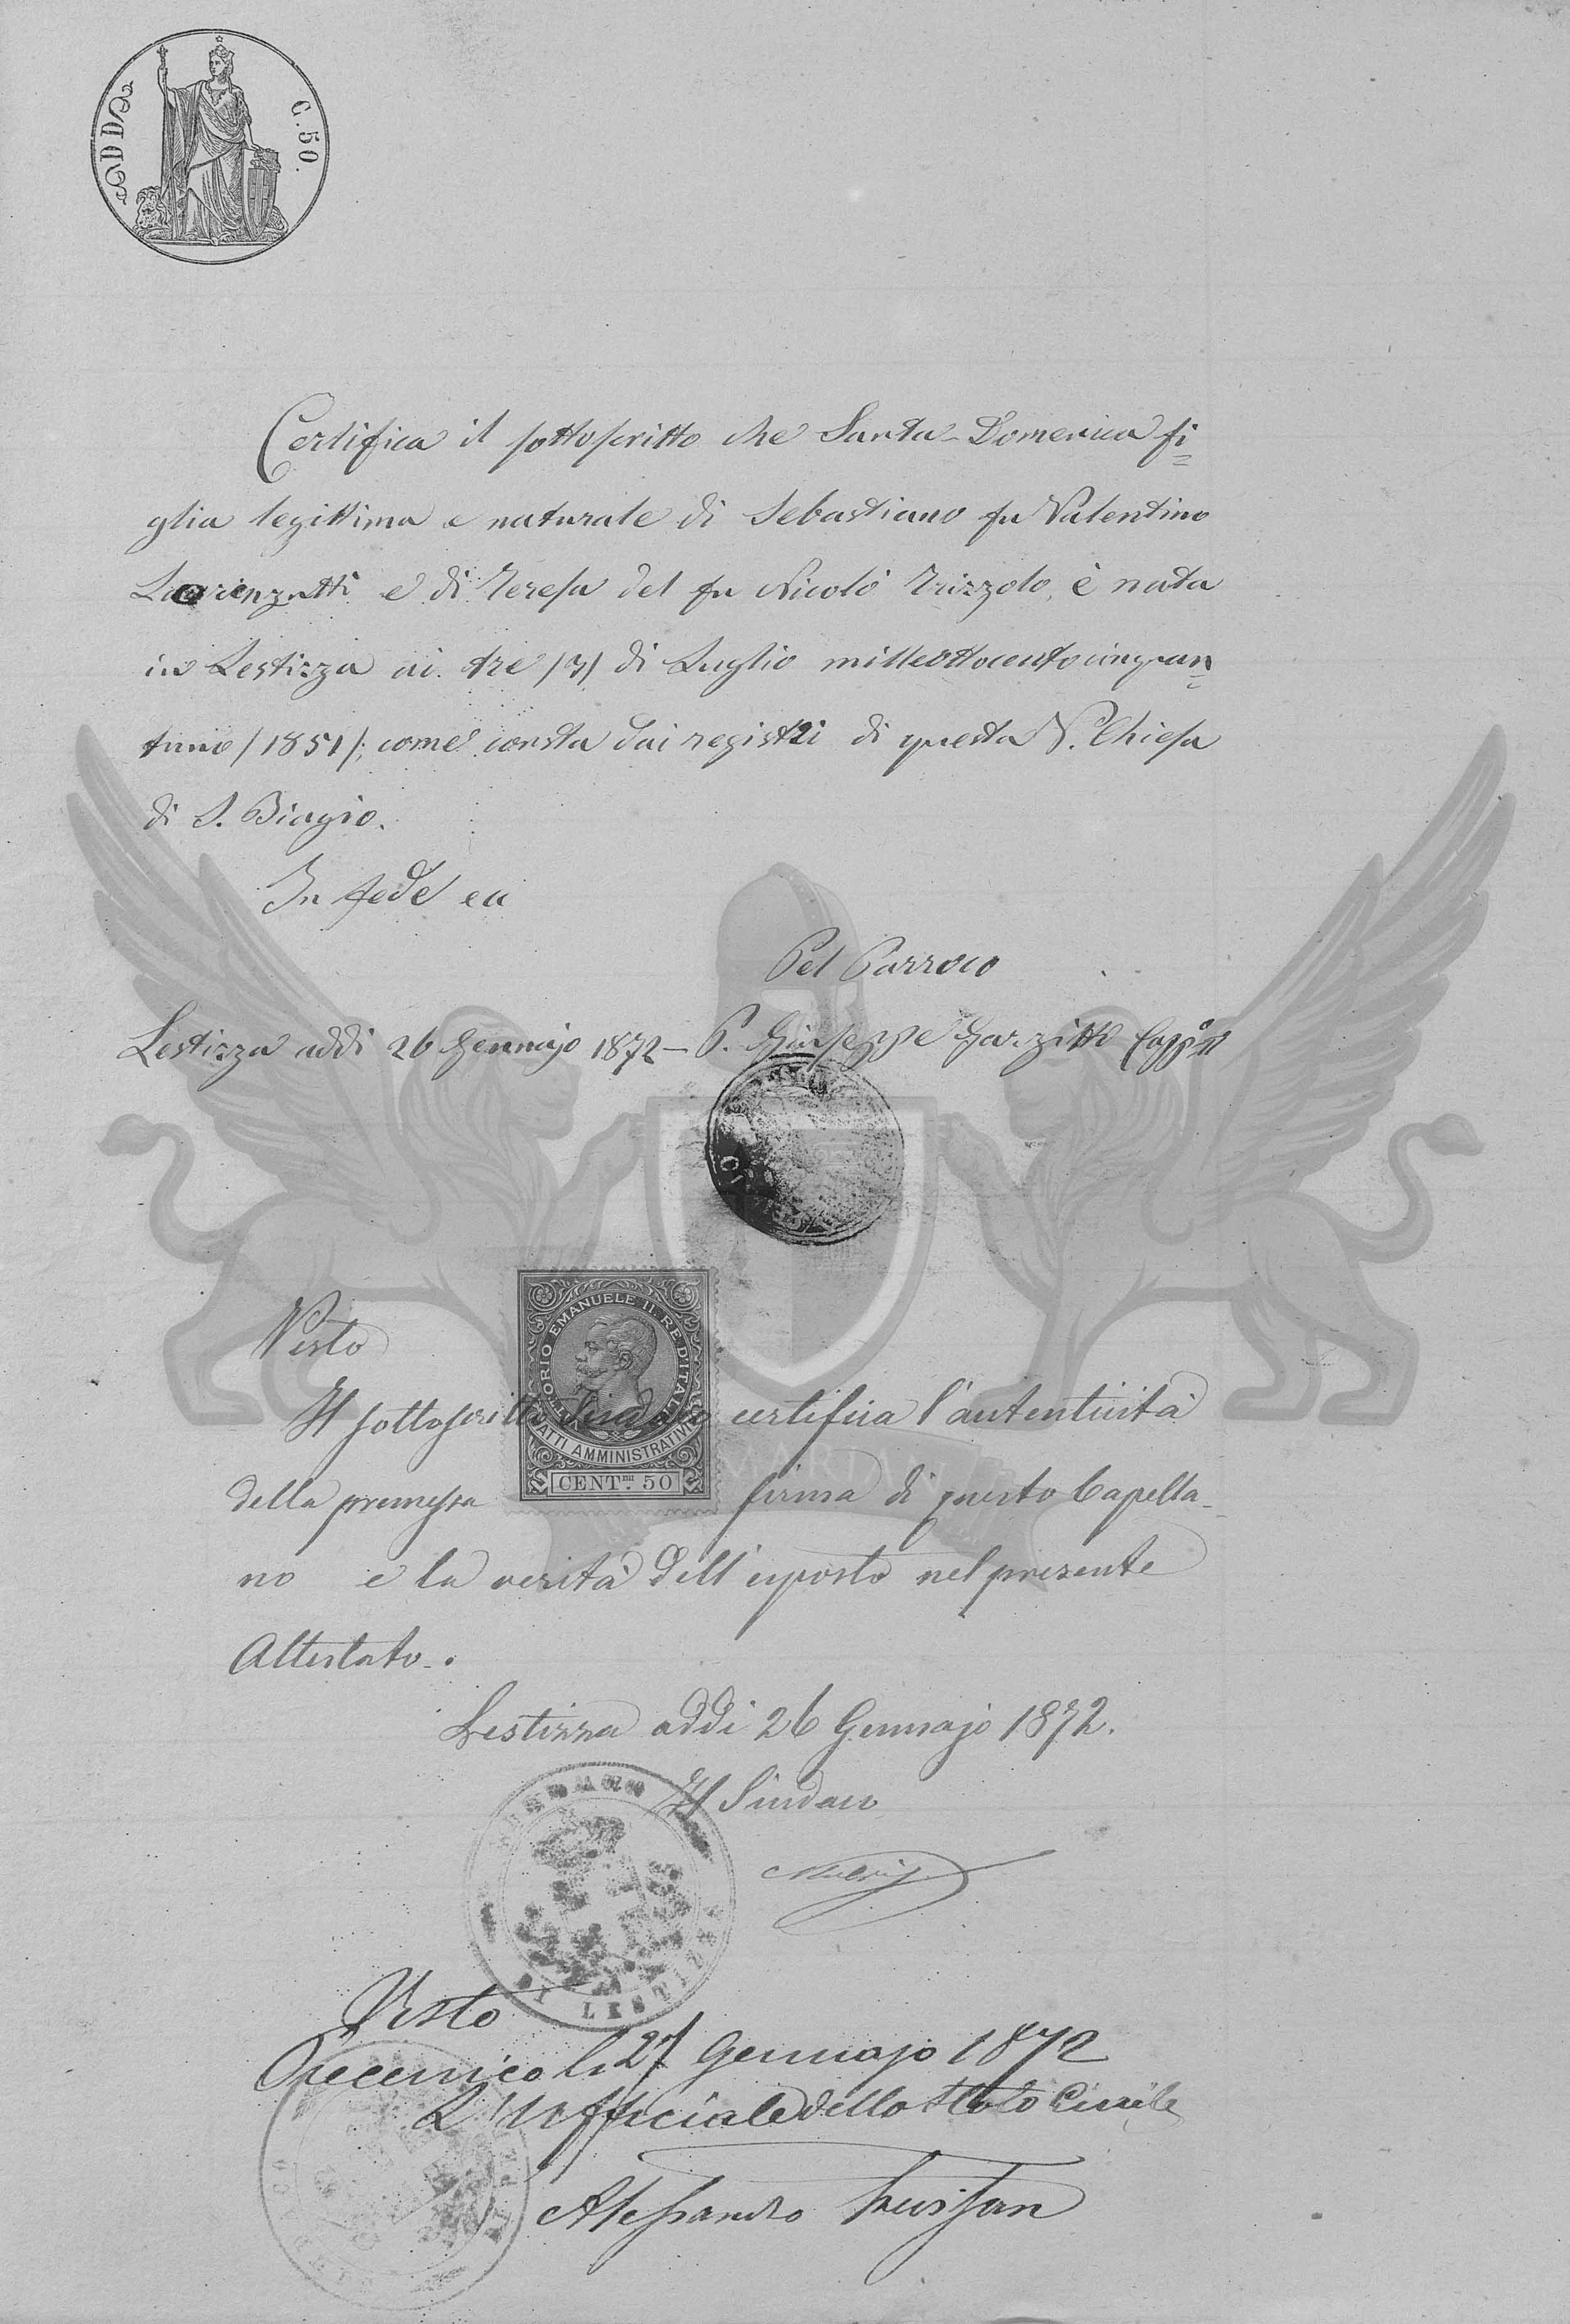 DD
C. 50.
Certifica il sottoscritto che Santa-Domenica fi=
glia legittima e naturale di Sebastiano fu Valentino
e di Teresa del fu Nicolò Trizzolo, è nata
in Lestizza ai tre /3/ di Luglio mille ottocento cinquan=
tuno /1851/; come consta dai registri di questa V. Chiesa
di S. Biagio.
In fede ea
Pel Parroco
Lestizza addi 26 Gennajo 1872 - P. Giuseppe Garzitti
VITTORIO EMANUELE II. RE D'ITALIA
ATTI AMMINISTRATIVI
CENT.mi 50
Visto
Il sottoscritto Sindaco certifica l'autenticità
della premessa firma di questo Capella-
no e la verità dell'esposto nel presente
Attestato.
Lestizza addi 26 Gennajo 1872.
Il Sindaco
DI LESTIZZA
Visto
Precenico li 27 Gennajo 1872
L'Ufficiale dello Stato Civile
Alessandro